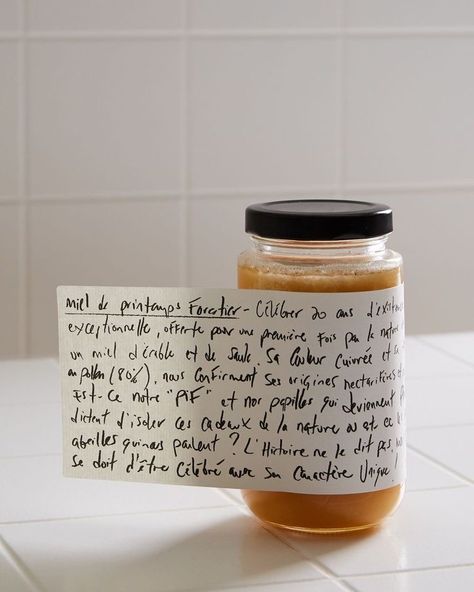 Miel de printemps Forestier - Célébrer 20 ans d'existen
exceptionnelle, offerte pour une première fois par la nature
un miel d'érable et de saule. Sa couleur cuivrée et se
en pollen (80%), nous confirment ses origines nectarifères e
Est-ce notre "PIF" et nos papilles qui deviennent
dictent d'isoler ces cadeaux de la nature ou est ce
abeilles qui nous parlent ? L'Histoire ne le dit pas,
se doit d'être célébré avec son caractère Unique !